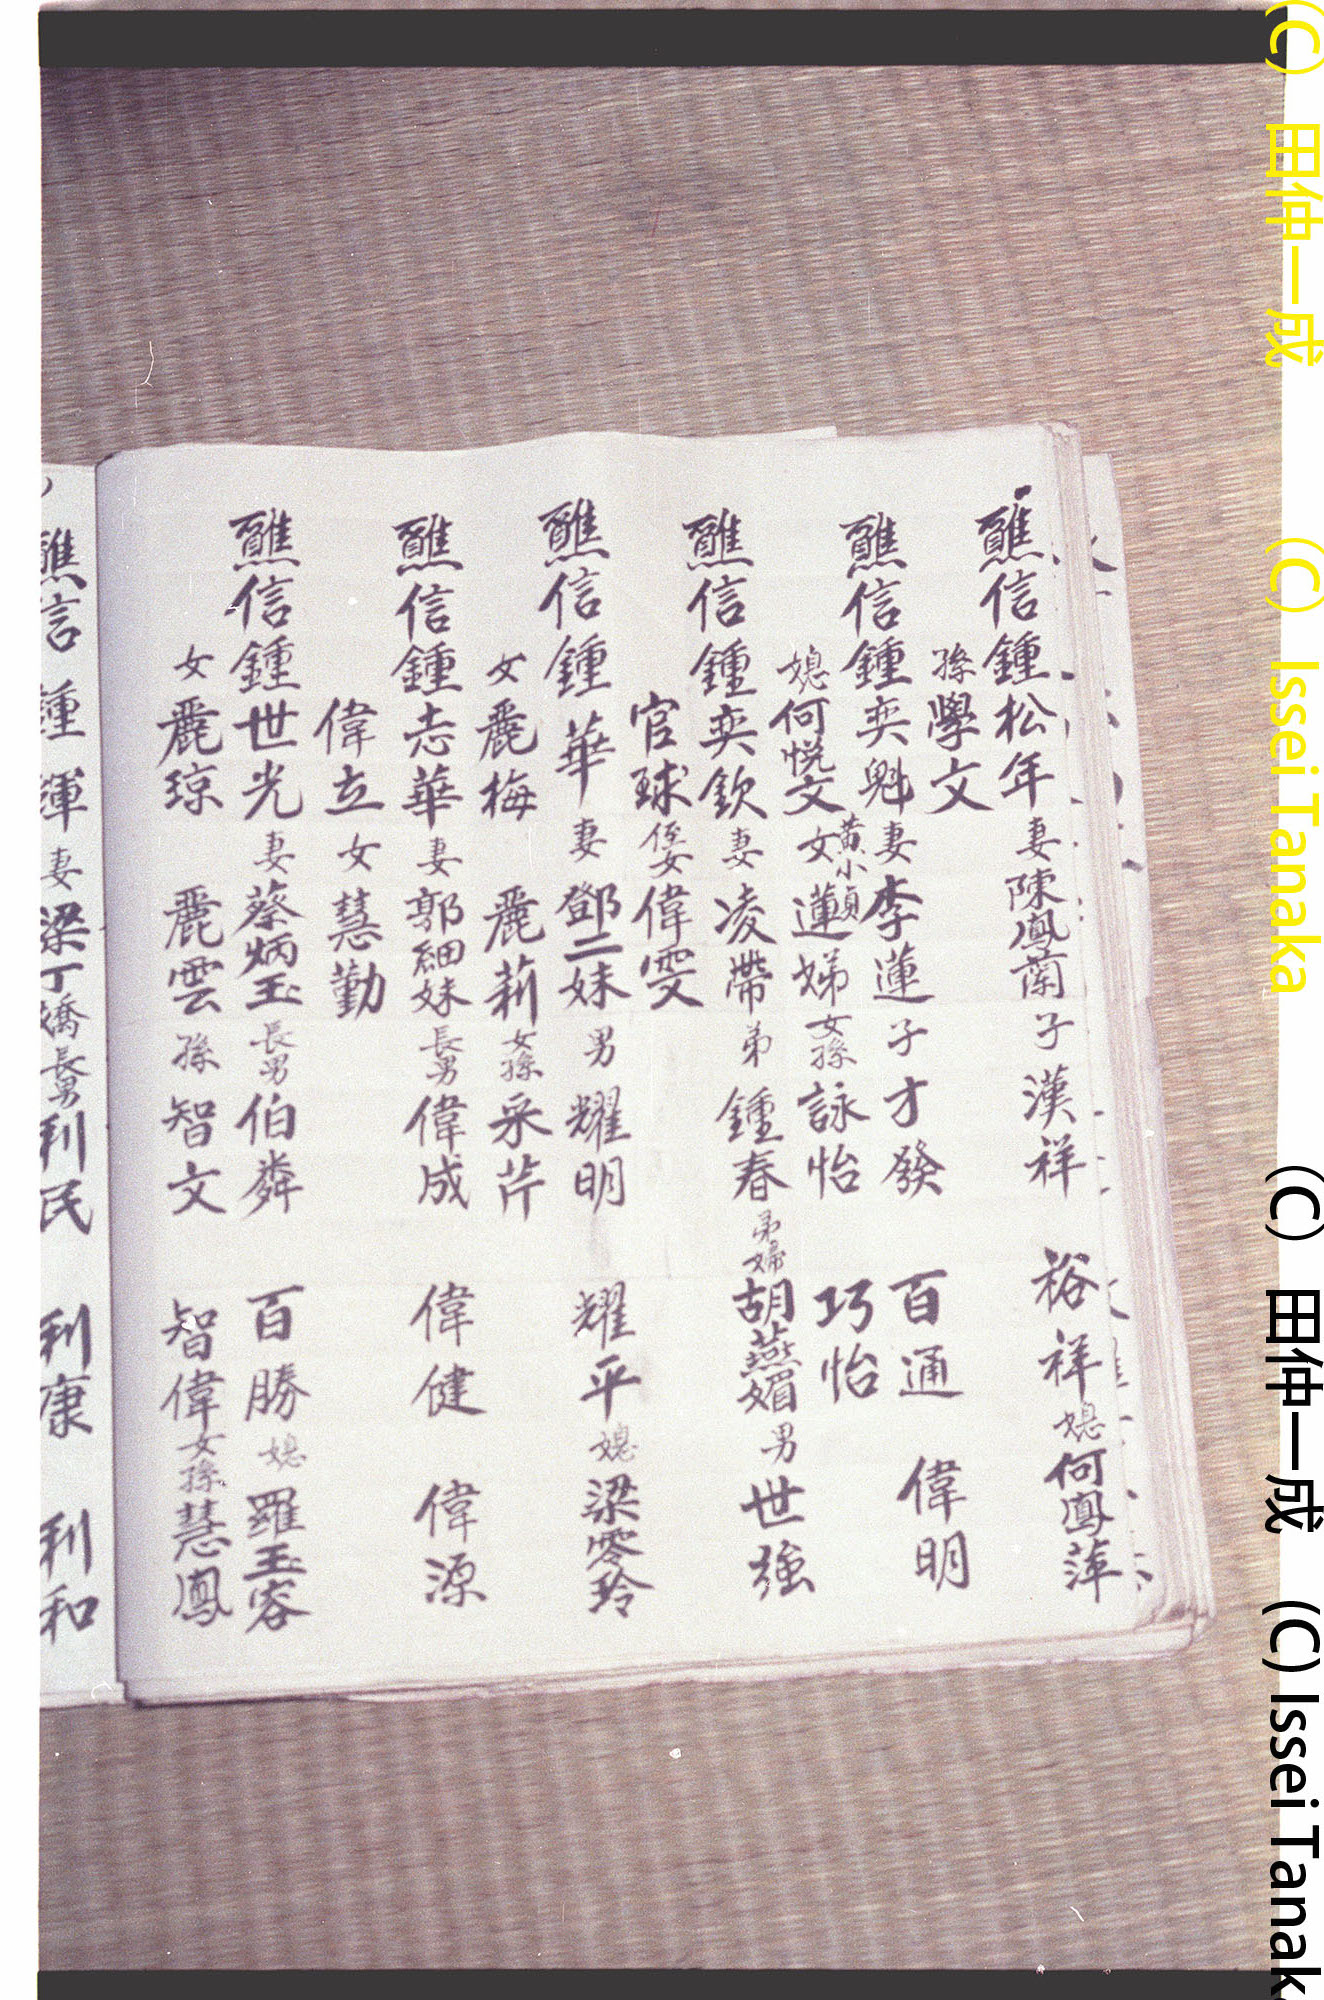 醮信鍾松年妻陳鳳蘭子漢祥 裕祥媳何鳳萍
孫學文
醮信鍾奕魁妻李蓮子才發 百通 偉明
媳何悦文黃小貞女蓮娣女孫詠怡 巧怡
醮信鍾奕欽妻凌帶弟鍾春弟婦胡燕媚男世強
官球侄女偉雯
醮信鍾華妻鄧二妹男耀明 耀平媳梁零玲
女麗梅 麗莉女孫采芹
醮信鍾志華妻郭細妹長男偉成 偉健 偉源
偉立女慧勤
醮信鍾世光妻蔡炳玉長男伯粦 百勝媳羅玉容
女麗琼 麗雲孫智文 智偉女孫慧鳳
醮信鍾輝妻梁丁嬌長男利民 利康 利和
(C) 田仲一成 (C) Issei Tanaka
(C) 田仲一成 (C) Issei Tanak